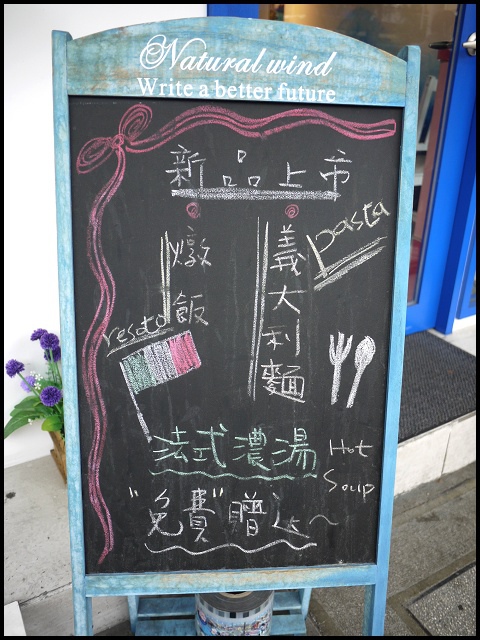 Natural wind
Write a better future
新品上市
義大利麵
pasta
燉飯
resoto
法式濃湯
Hot Soup
"免費"贈送~